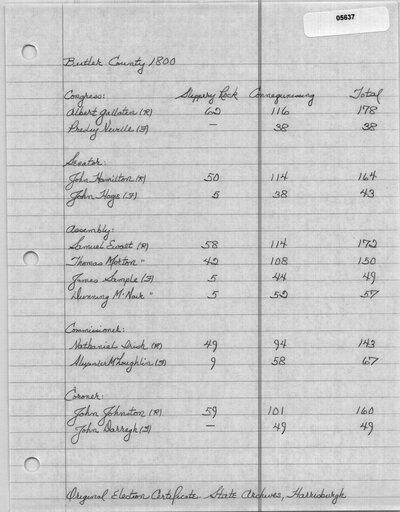 05637
Butler County 1800
Congress: Slippery Rock Connequenessing Total
Albert Gallatin (R) 62 116 178
Presley Neville (F) — 38 38
Senator:
John Hamilton (R) 50 114 164
John Hoge (F) 5 38 43
Assembly:
Samuel Ewalt (R) 58 114 172
Thomas Morton " 42 108 150
James Sample (F) 5 44 49
Dunning McNair " 5 52 57
Commissioner:
Nathaniel Irish (R) 49 94 143
Alexander McLaughlin (F) 9 58 67
Coroner:
John Johnston (R) 59 101 160
John Darragh (F) — 49 49
Original Election Certificate State Archives, Harrisburgh